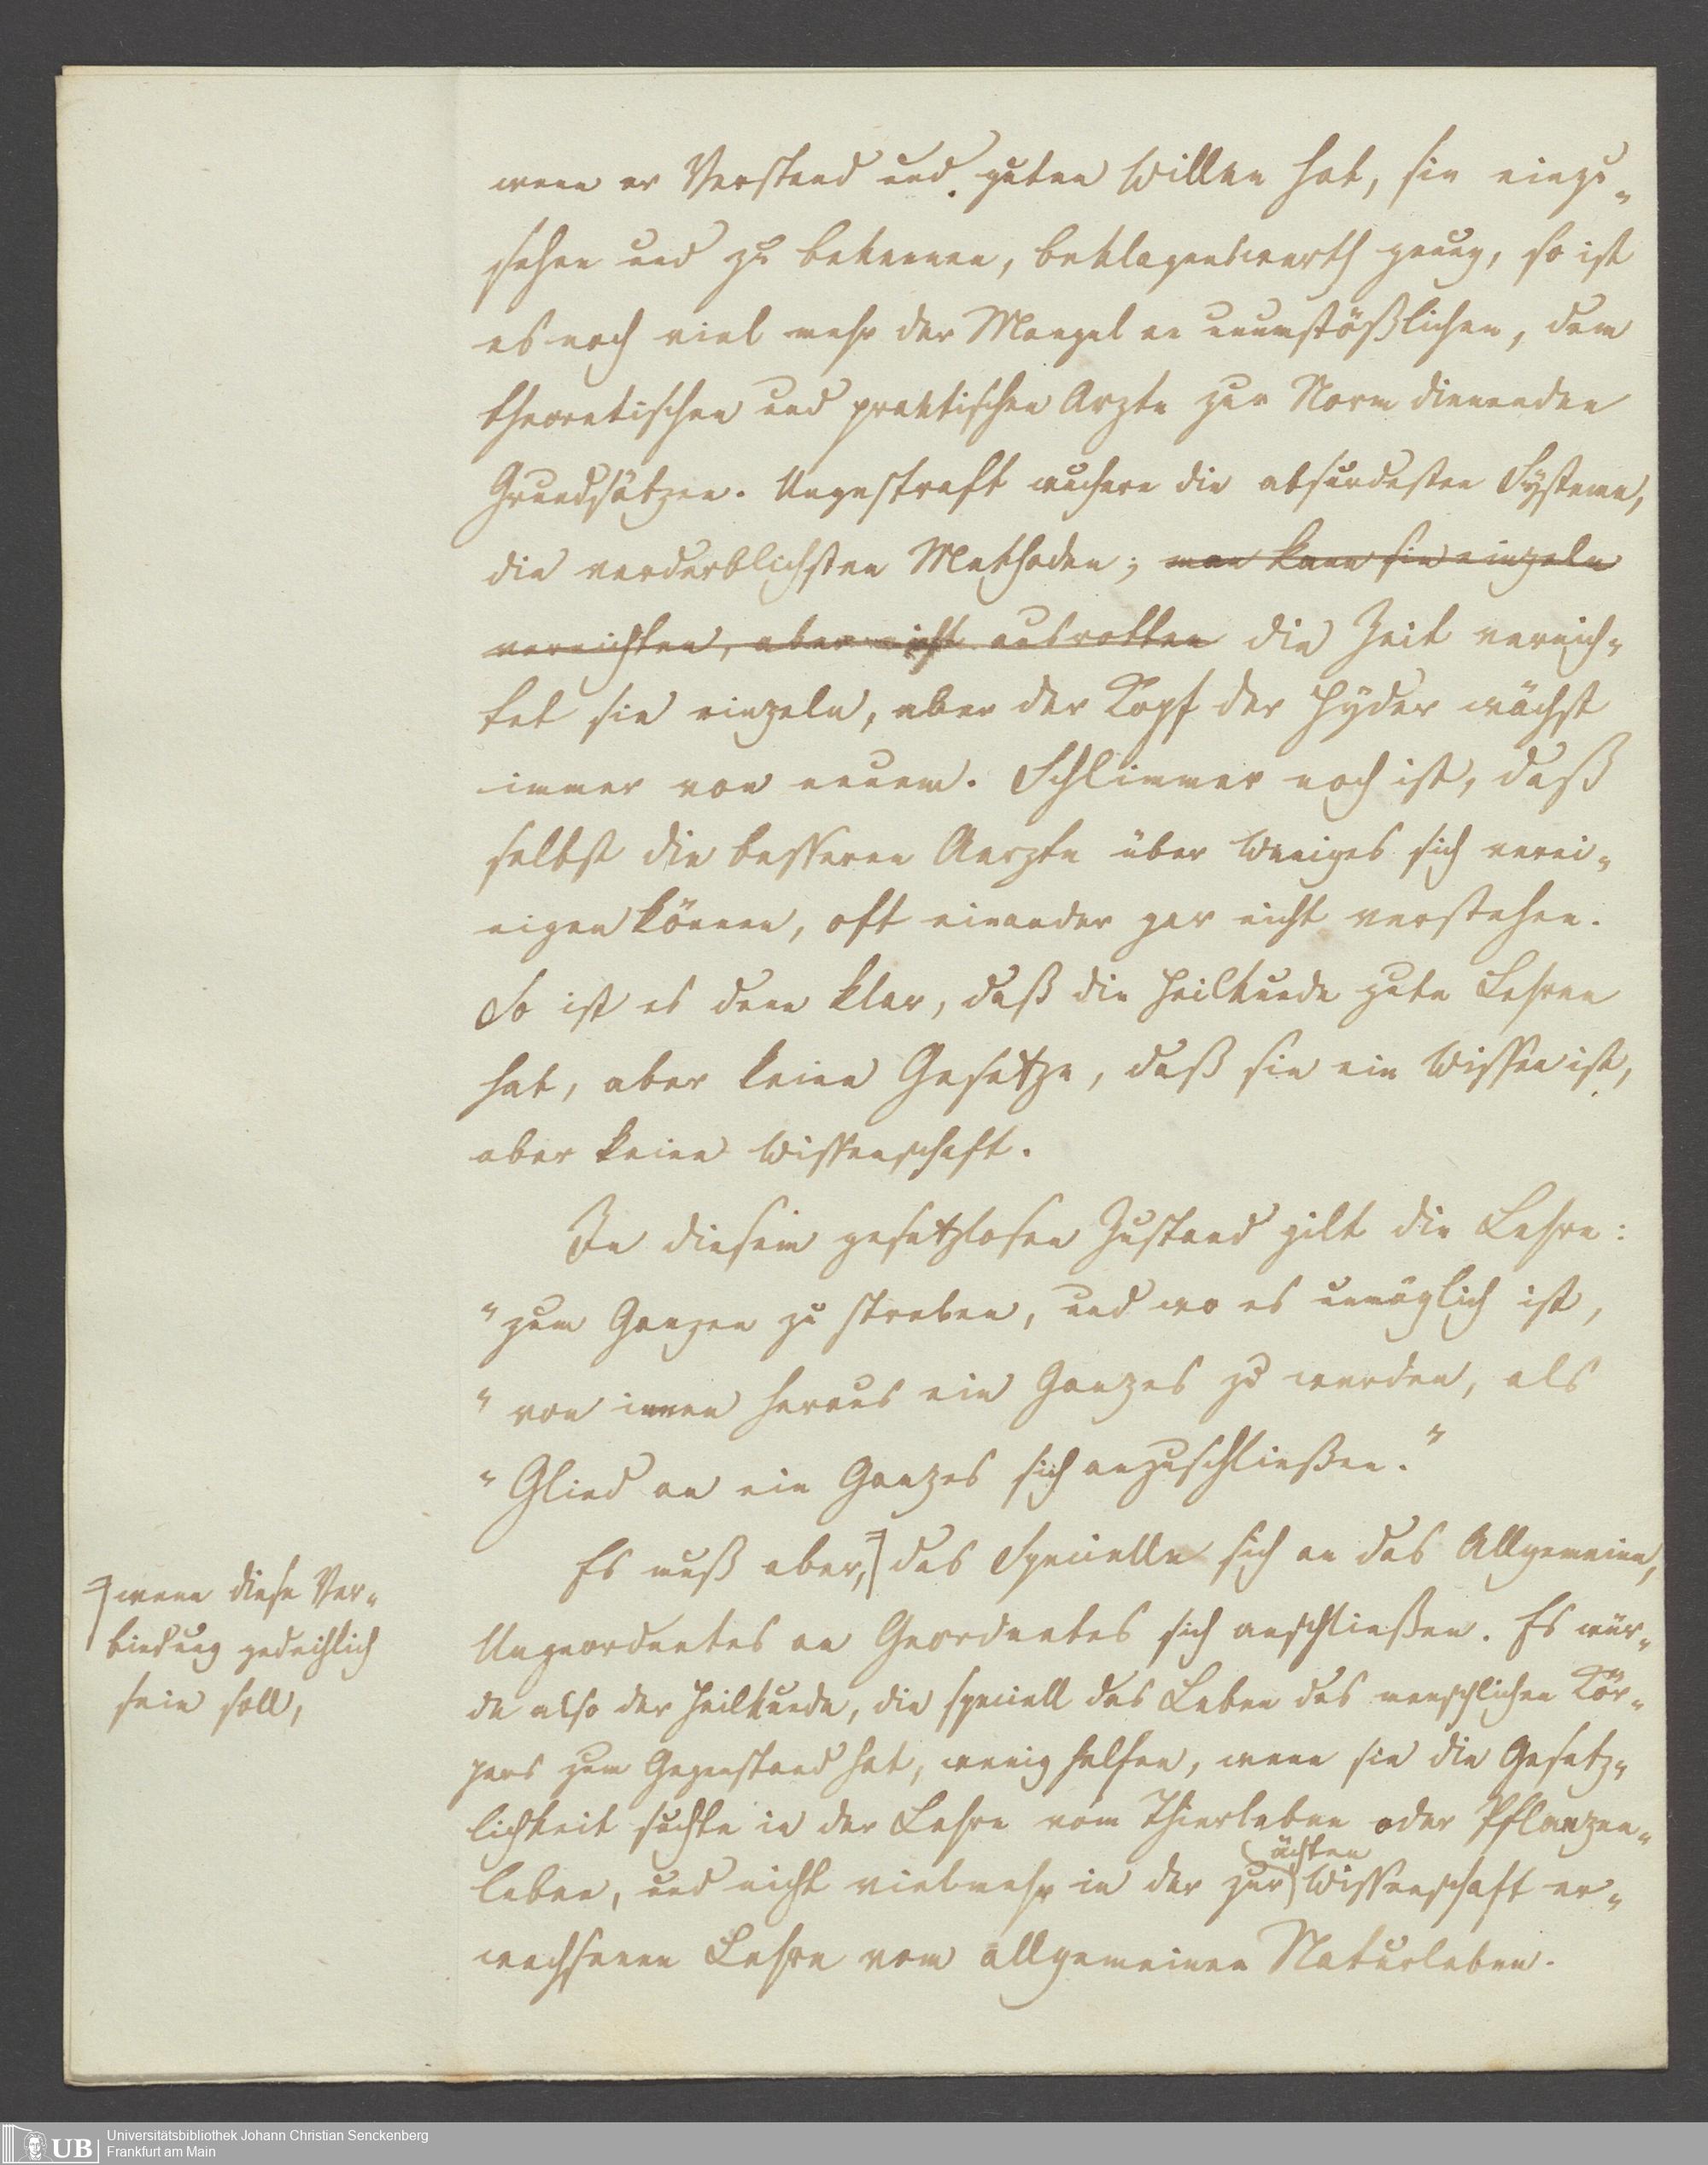 wenn er Verstand und guten Willen hat, sie einzu-
sehen und zu bekennen, beklagenswerth genug, so ist
es noch viel mehr der Mangel an unumstößlichen, dem
theoretischen und praktischen Arzte zur Norm dienenden
Grundsätzen. Ungestraft wuchern die absurdesten Systeme,
die verderblichsten Methoden; man kann sie einzeln
vernichten, aber nicht ausrotten die Zeit vernich-
tet sie einzeln, aber der Kopf der Hyder wächst
immer von neuem. Schlimmer noch ist, daß
selbst die besseren Aerzte über Weniges sich verei-
nigen können, oft einander gar nicht verstehen.
So ist es denn klar, daß die Heilkunde gute Lehren
hat, aber keine Gesetze, daß sie ein Wissen ist,
aber keine Wissenschaft.
In diesem gesetzlosen Zustand gilt die Lehre:
"zum Ganzen zu streben, und wo es unmöglich ist,
"von innen heraus ein Ganzes zu werden, als
"Glied an ein Ganzes sich anzuschließen."
Es muß aber, das Specielle sich an das Allgemeine,
wenn diese Ver-
bindung gedeihlich
sein soll,
Ungeordnetes an Geordnetes sich anschließen. Es wür-
de also der Heilkunde, die speciell das Leben des menschlichen Kör-
pers zum Gegenstand hat, wenig helfen, wenn sie die Gesetz-
lichkeit suchte in der Lehre vom Thierleben oder Pflanzen-
ächten
leben, und nicht vielmehr in der zur Wissenschaft er-
wachsenen Lehre vom allgemeinen Naturleben.
UB
Universitätsbibliothek Johann Christian Senckenberg
Frankfurt am Main